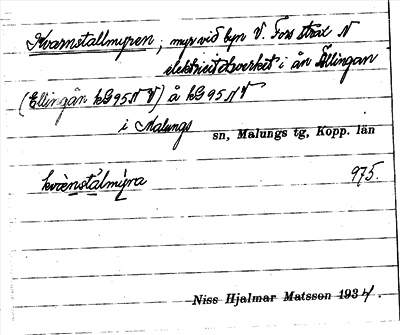 Kvarnstallmyren, myr vid byn V. Fors strax N
elektricitetsverket i ån Ällingan
(Ellingån kG95NV) å kG95NV
i Malungs sn, Malungs tg, Kopp. län
kvènstálmýra 975.
Niss Hjalmar Matsson 1934.